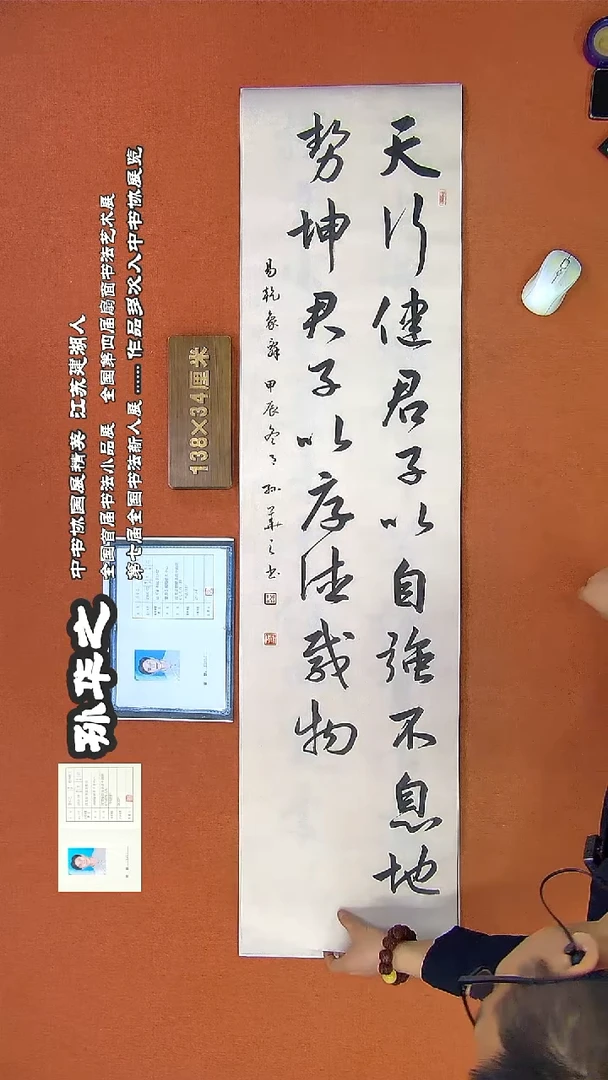 天行健君子以自強不息地
勢坤君子以厚德載物
易乾象辭 甲辰冬月 孙華之书
138×34厘米
中书协国展精英 江苏建湖人
全国首届书法小品展 全国第四届扇面书法艺术展
第七届全国书法新人展 …… 作品多次入中书协展览
孙华之